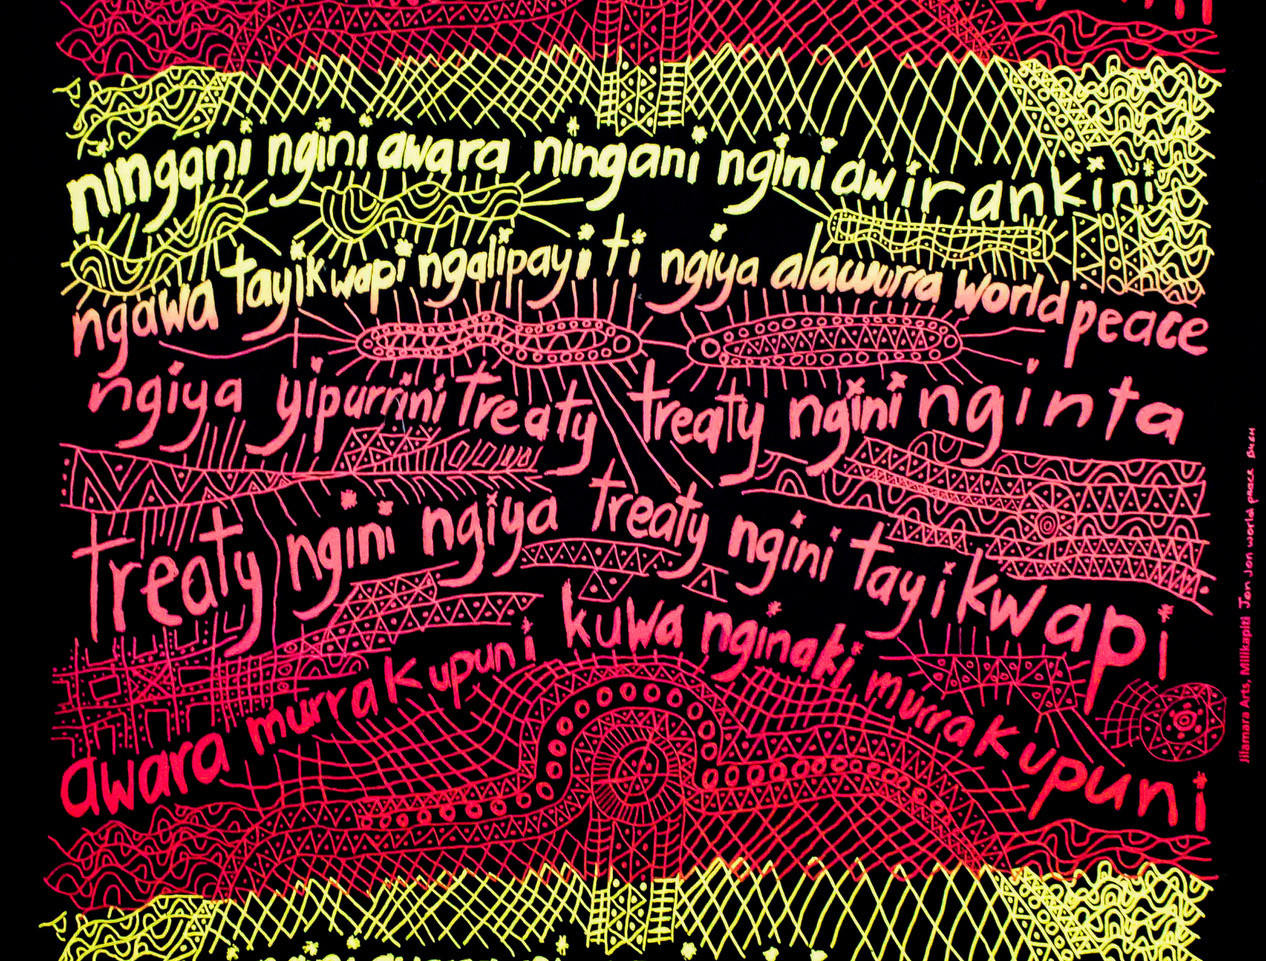 ningani ngini awara ningani ngini awirankini
ngawa tayikwapi ngalipayi ti ngiya alawurra world peace
ngiya yipurrini treaty treaty ngini nginta
treaty ngini ngiya treaty ngini tayikwapi
awara murrakupuni kuwa nginaki murrakupuni
Jilamara Arts, Milikapiti Jon Jon world peace